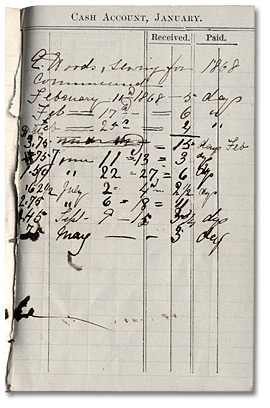 CASH ACCOUNT, JANUARY.
Received. Paid.
E. Woods, Sewing for 1868
Commenced
February 11th 1868 - 5 days
Feb = 17 = 6 "
Feb = 24 = 2 "
3.75 = 15 days Feb
.75 June 11 = 13 = 3 dys
1.50 " 22 = 27 = 6 dys
.62½ July 2 = 4 = 2½ dys
2.75 " 6 = 18 = 11
Sept - 9 - 15 dys
.75 May - - 3 day